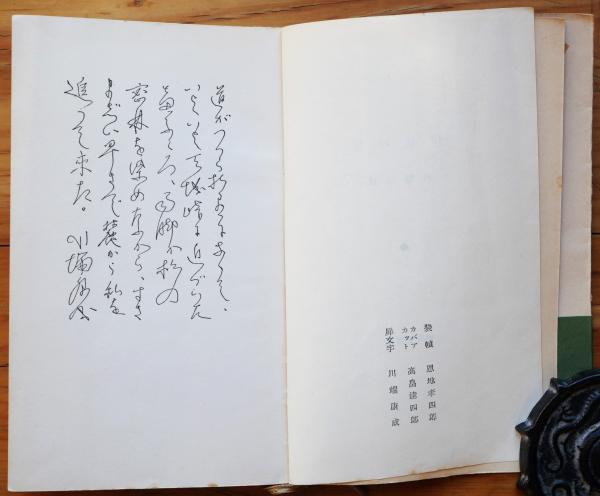 装幀 恩地孝四郎
カバア
カット 高畠達四郎
扉文字 川端康成
道がつづら折りになつて、
いよいよ天城峠に近づいた
と思ふころ、雨脚が杉の
密林を染めながら、すさ
まじい早さで麓から私を
追つて来た。 川端康成